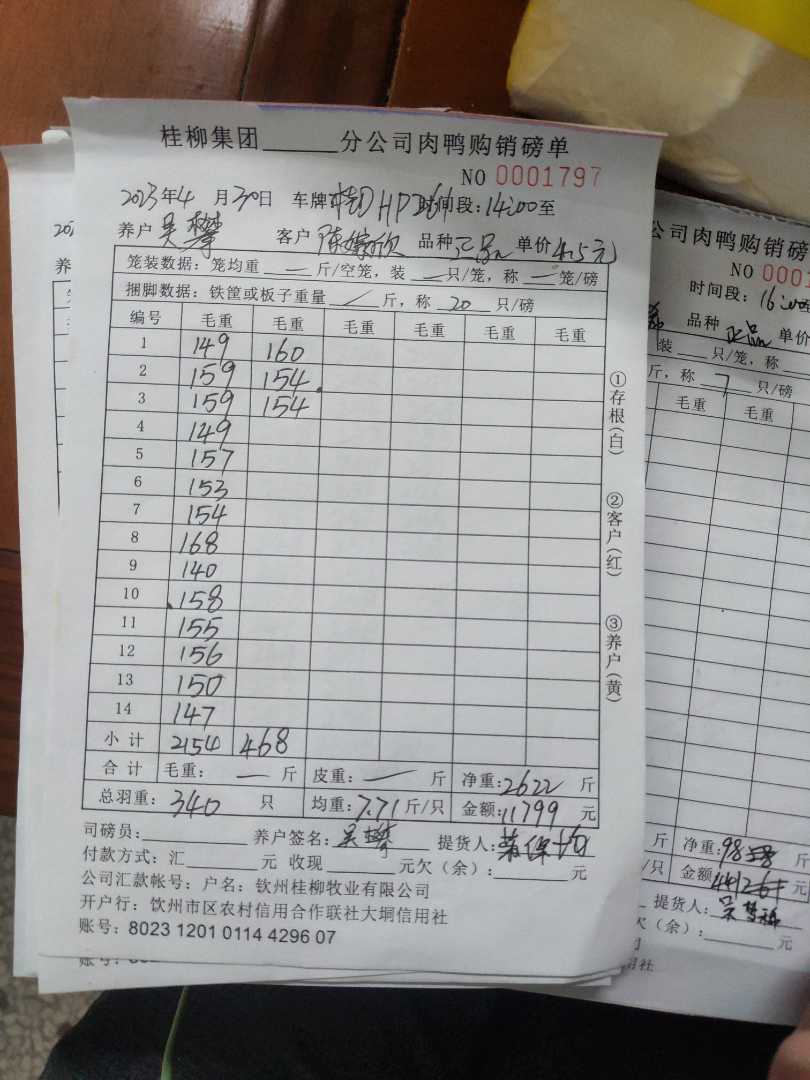 桂柳集团______分公司肉鸭购销磅单
NO 0001797
2023年4月30日 车牌 HP 时间段:14:00至
养户 吴攀 客户 陈嫁欣 品种 正品 单价4.5元
笼装数据:笼均重 — 斤/空笼,装 — 只/笼,称 — 笼/磅
捆脚数据:铁筐或板子重量 / 斤,称 20 只/磅
编号 毛重 毛重 毛重 毛重 毛重 毛重
1 149 160
2 159 154
3 159 154
4 149
5 157
6 153
7 154
8 168
9 140
10 158
11 155
12 156
13 150
14 147
小计 2154 468
合计 毛重: — 斤 皮重: — 斤 净重:2622 斤
总羽重: 340 只 均重:7.71斤/只 金额:11799 元
司磅员:______ 养户签名:吴攀 提货人:
付款方式:汇______元 收现______元欠(余):______元
公司汇款帐号:户名:钦州桂柳牧业有限公司
开户行:饮州市区农村信用合作联社大垌信用社
账号:8023 1201 0114 4296 07
①存根(白) ②客户(红) ③养户(黄)
公司肉鸭购销磅
NO 0001
时间段:16:00至
品种 正品 单价
装 — 只/笼,称
斤,称 7 只/磅
毛重 毛重
斤 净重:98 斤
/只 金额: 元
提货人:
欠(余):______元
用社